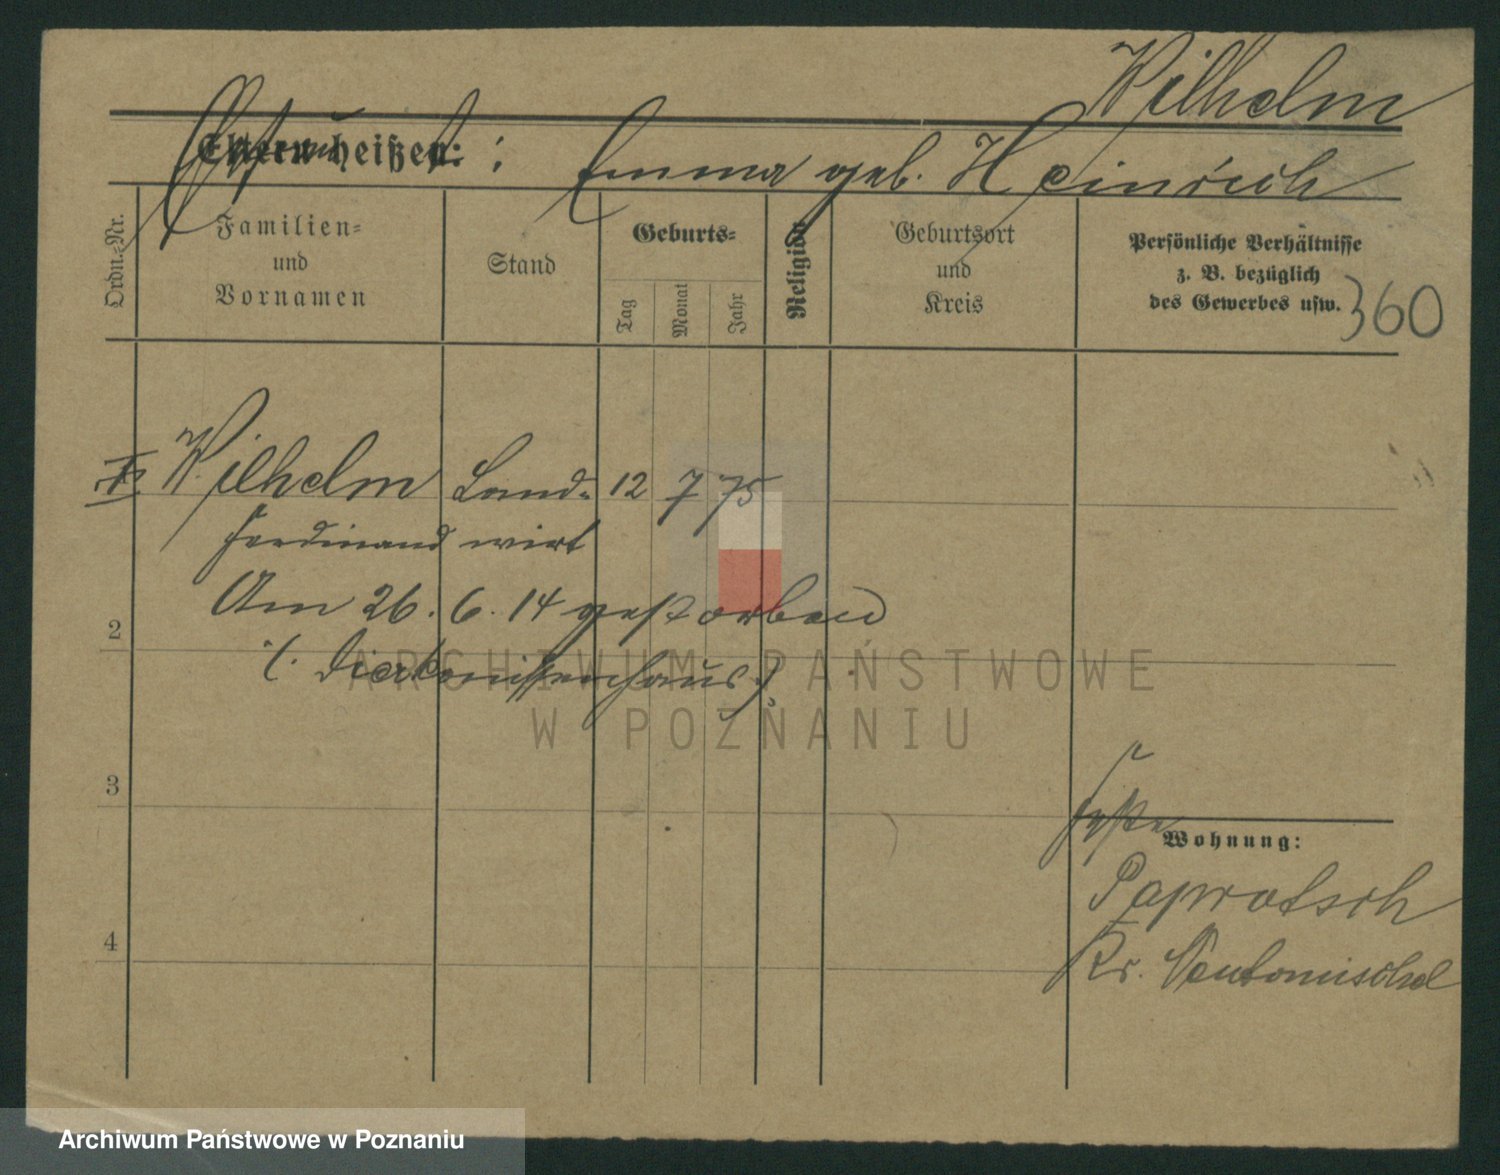 Wilhelm
Eltern heißen:
Ehefrau : Emma geb. Heinrich
Ordn.-Nr.
Familien-
und
Vornamen
Stand
Geburts-
Tag
Monat
Jahr
Religion
Geburtsort
und
Kreis
Persönliche Verhältnisse
z. B. bezüglich
des Gewerbes usw.
360
Wilhelm Land- 12 7 75
Ferdinand wirt
Am 26. 6. 14 gestorben
2
(. Diakonissenhaus.)
3
Wohnung:
Paprotsch
4
Kr. Neutomischel
ARCHIWUM PAŃSTWOWE
W POZNANIU
Archiwum Państwowe w Poznaniu